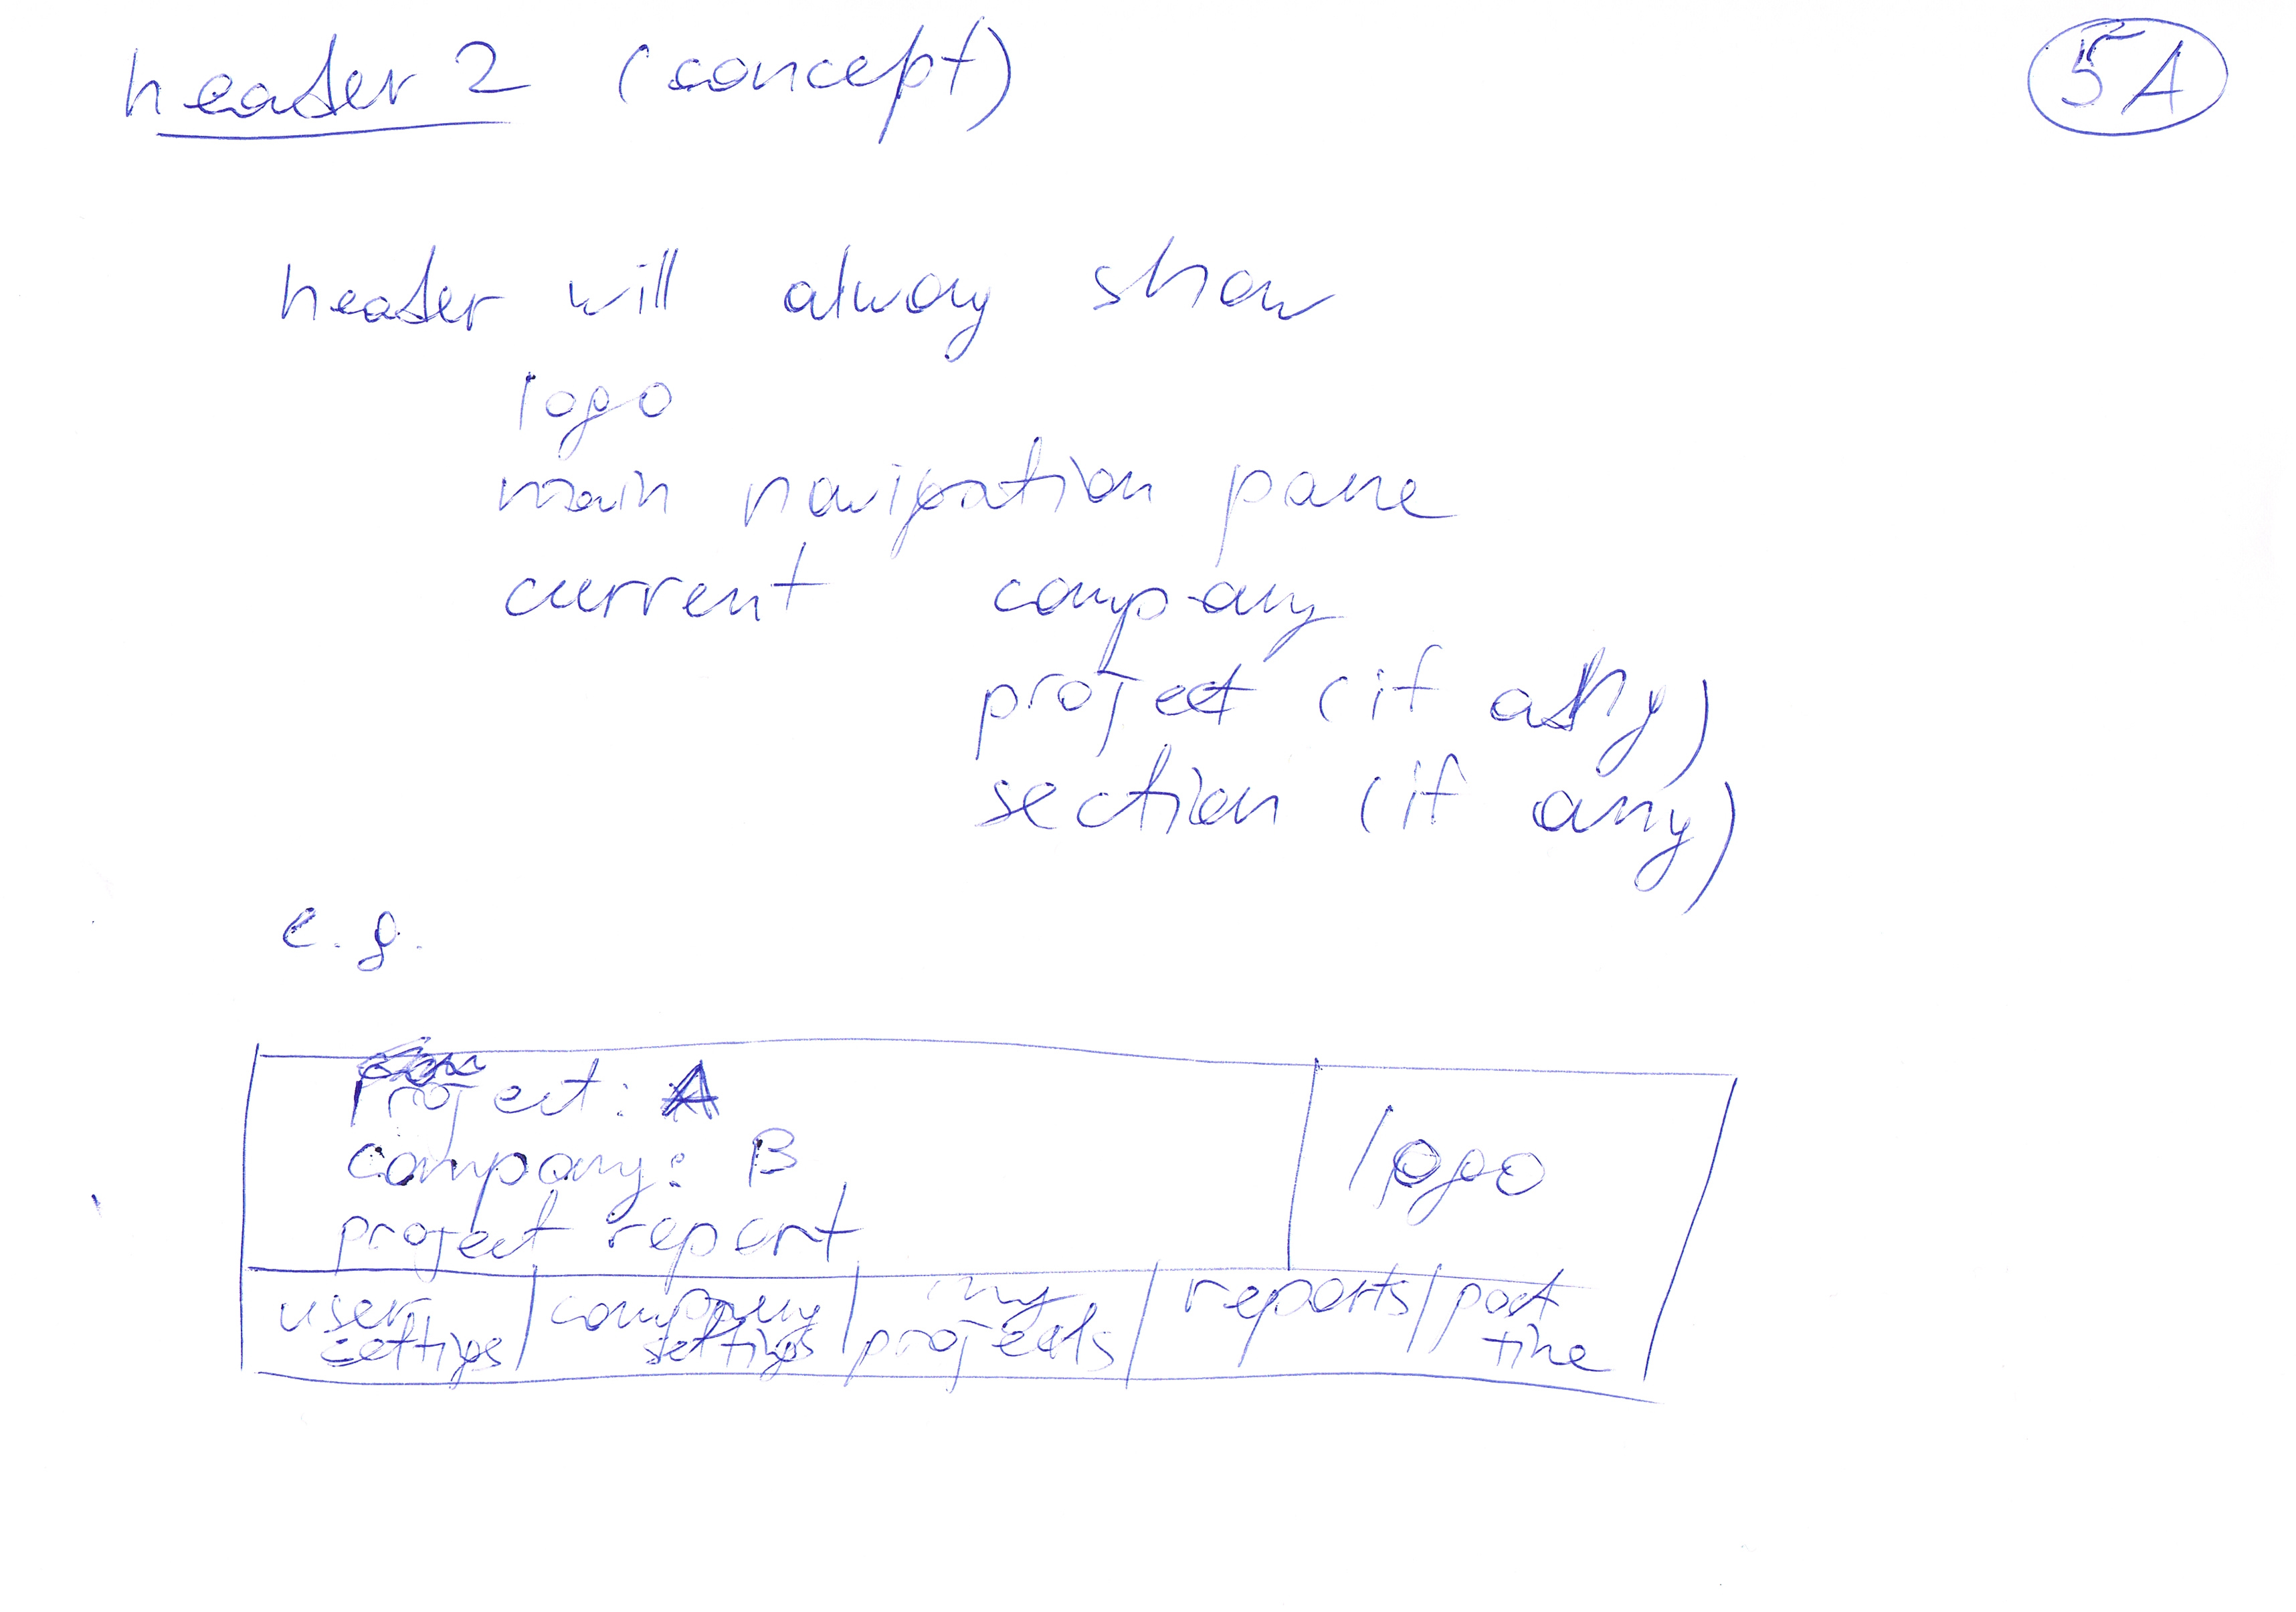 header 2 (concept)
5A
header will alway show
logo
main navigation pane
current company
project (if any)
section (if any)
e.g.
project: A
company: B
project report
logo
user settings
company settings
my projects
reports
post time